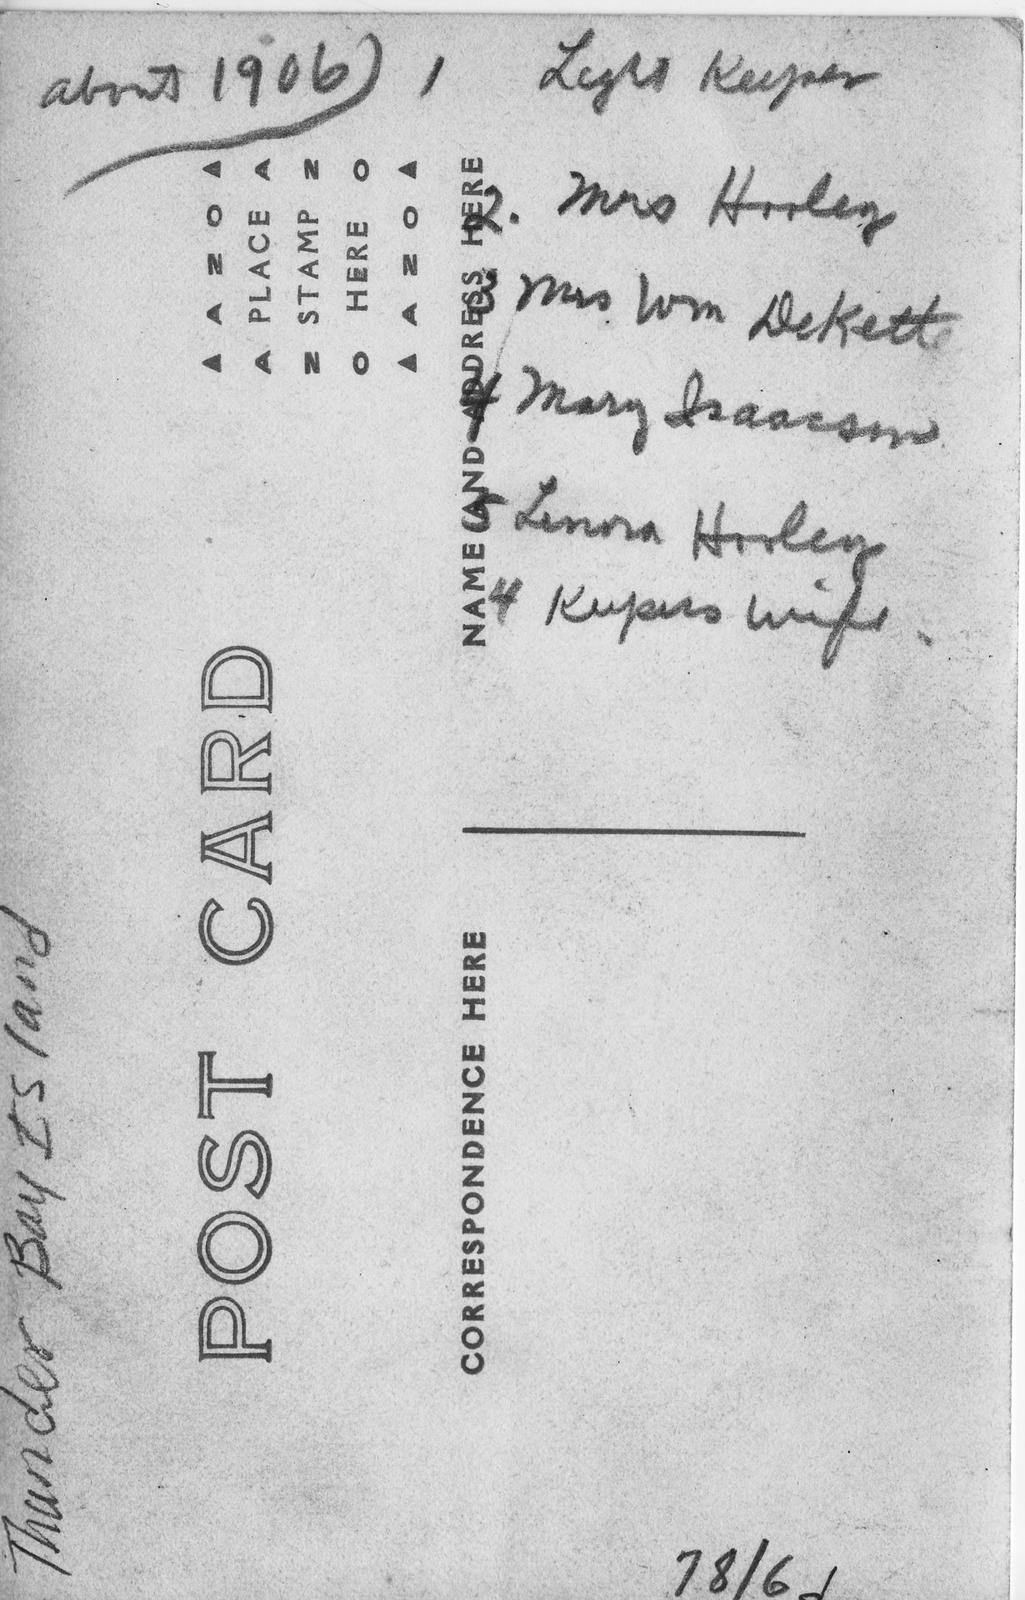 about 1906) 1 Light Keeper
2. Mrs Hooley
3 Mrs Wm DeKett
4 Mary Isaacson
5 Lenora Hooley
4 Keepers wife.
AZOA
A PLACE A
Z STAMP Z
O HERE O
AZOA
POST CARD
NAME AND ADDRESS HERE
CORRESPONDENCE HERE
Thunder Bay Island
78/6